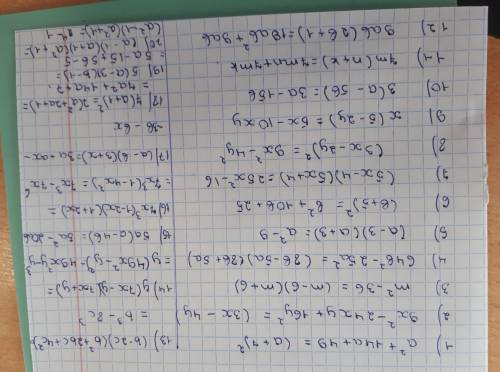 1) a² + 14a + 49 = (a + 7)²
2) 9x² - 24xy + 16y² = (3x - 4y)
3) m² - 36 = (m - 6)(m + 6)
4) 64b² - 25a² = (8b - 5a)(8b + 5a)
5) (a - 3)(a + 3) = a² - 9
6) (b + 5)² = b² + 10b + 25
7) (5x - 4)(5x + 4) = 25x² - 16
8) (3x - 2y)² = 9x² - 4y²
9) x(5 - 2y) = 5x - 10xy
10) 3(a - 5b) = 3a - 15b
11) 4m(n + k) = 4mn + 4mk
12) 9ab(2b + 1) = 18ab² + 9ab
13) (b - 2c)(b² + 2bc + 4c²)
= b³ - 8c³
14) y(7x - y)(7x + y) =
= y(49x² - y²) = 49x²y - y³
15) 5a(a - 4b) = 5a² - 20ab
16) 7x³(1 - 2x)(1 + 2x) =
= 7x³(1 - 4x²) = 7x³ - 7x⁶
17) (a - 6)(3 + x) = 3a + ax -
- 36 - 6x
18) 4(a + 1)² = 2(a² + 2a + 1) =
= 4a² + 4a + 2
19) 5(a - 3)(b - 1) =
5a - 15 + 5b - 5
20) (a - 1)(a + 1)(a² + 1) =
(a² - 1)(a² + 1) =